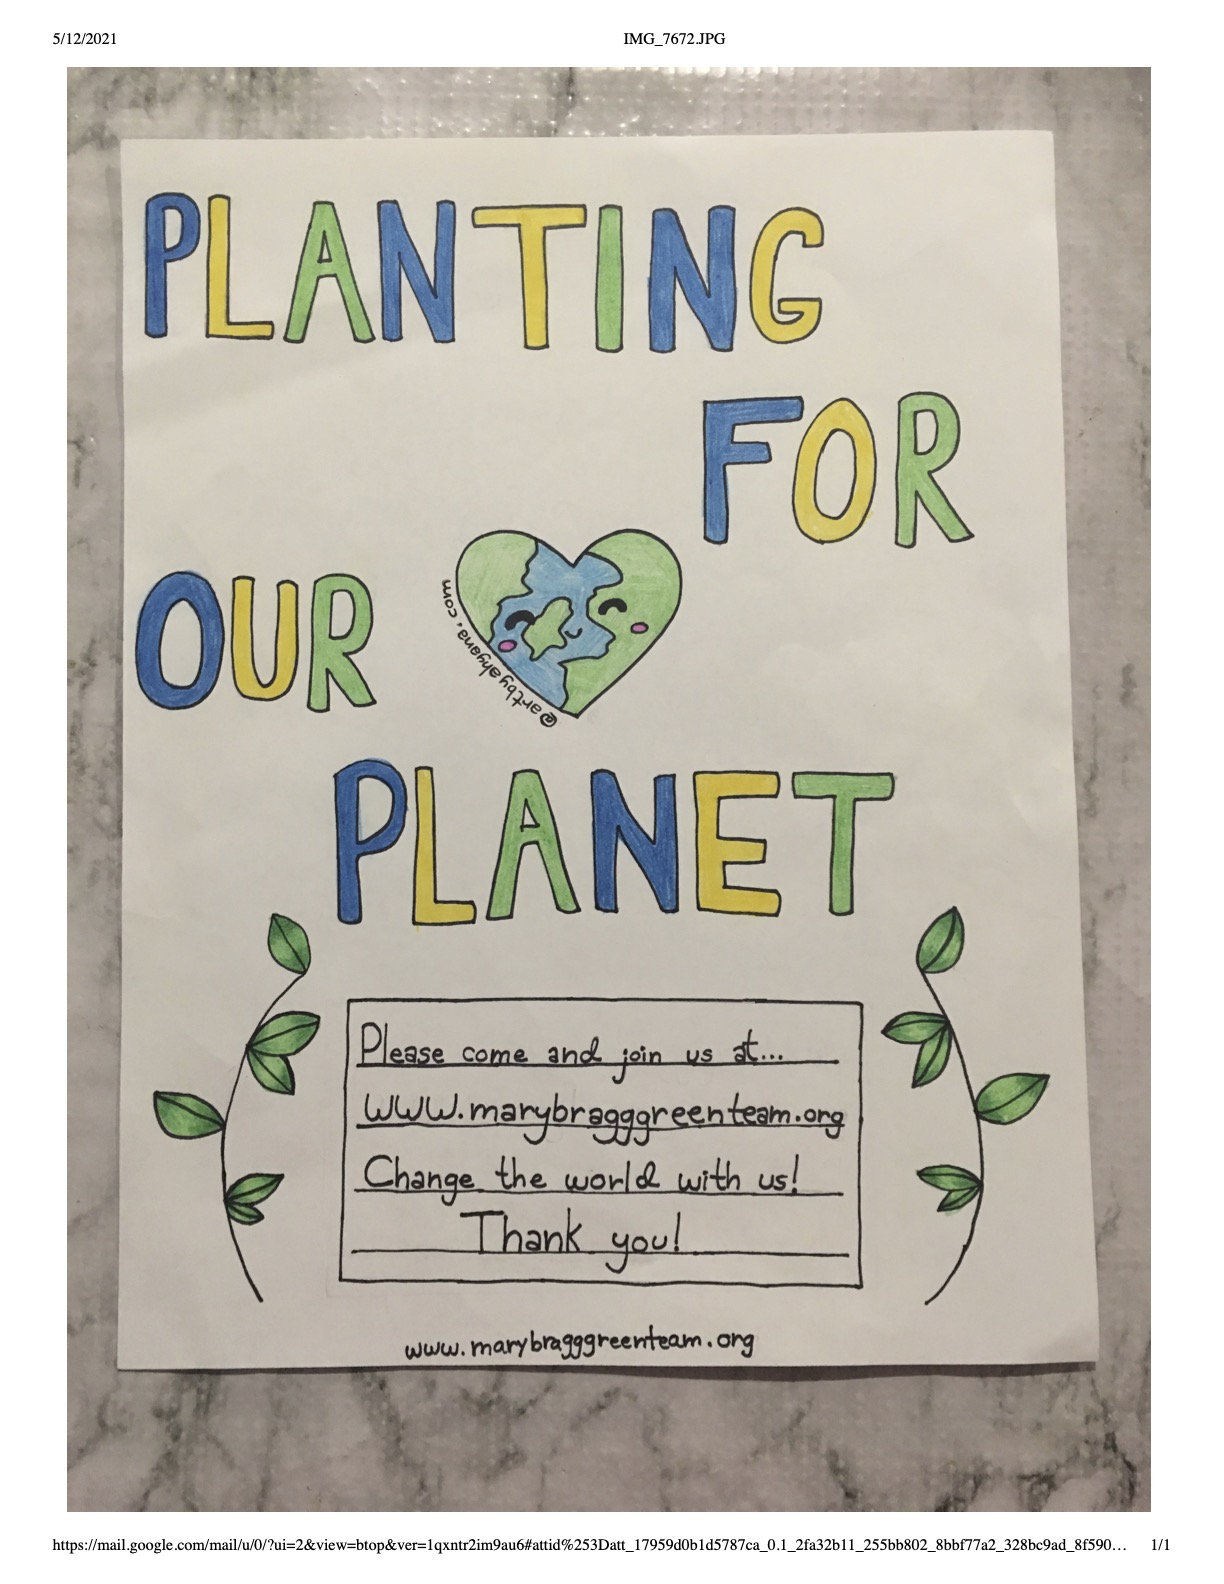 5/12/2021 IMG_7672.JPG
PLANTING
FOR
OUR
@artbyahyana.com
PLANET
Please come and join us at...
www.marybragggreenteam.org
Change the world with us!
Thank you!
www.marybragggreenteam.org
https://mail.google.com/mail/u/0/?ui=2&view=btop&ver=1qxntr2im9au6#attid%253Datt_17959d0b1d5787ca_0.1_2fa32b11_255bb802_8bbf77a2_328bc9ad_8f590… 1/1